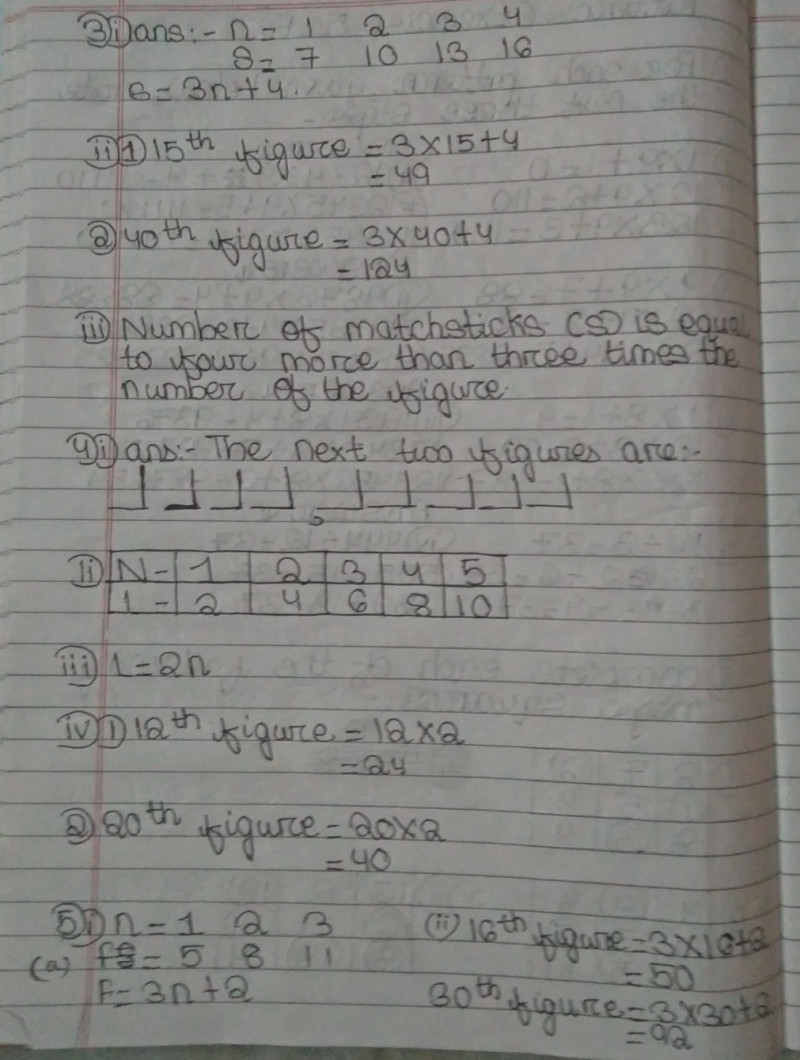 3)i) ans:- n = 1 2 3 4
S = 7 10 13 16
S = 3n+4
ii) 1) 15th figure = 3×15+4
= 49
2) 40th figure = 3×40+4
= 124
iii) Number of matchsticks (S) is equal
to four more than three times the
number of the figure.
4)i) ans:- The next two figures are:-
5
ii) N- 1 2 3 4 5
L- 2 4 6 8 10
iii) L=2n
iv) 1) 12th figure = 12×2
= 24
2) 20th figure = 20×2
= 40
5)i) n = 1 2 3
(a) = 5 8 11
F= 3n+2
(ii) 16th figure = 3×16+2
= 50
30th figure = 3×30+2
= 92